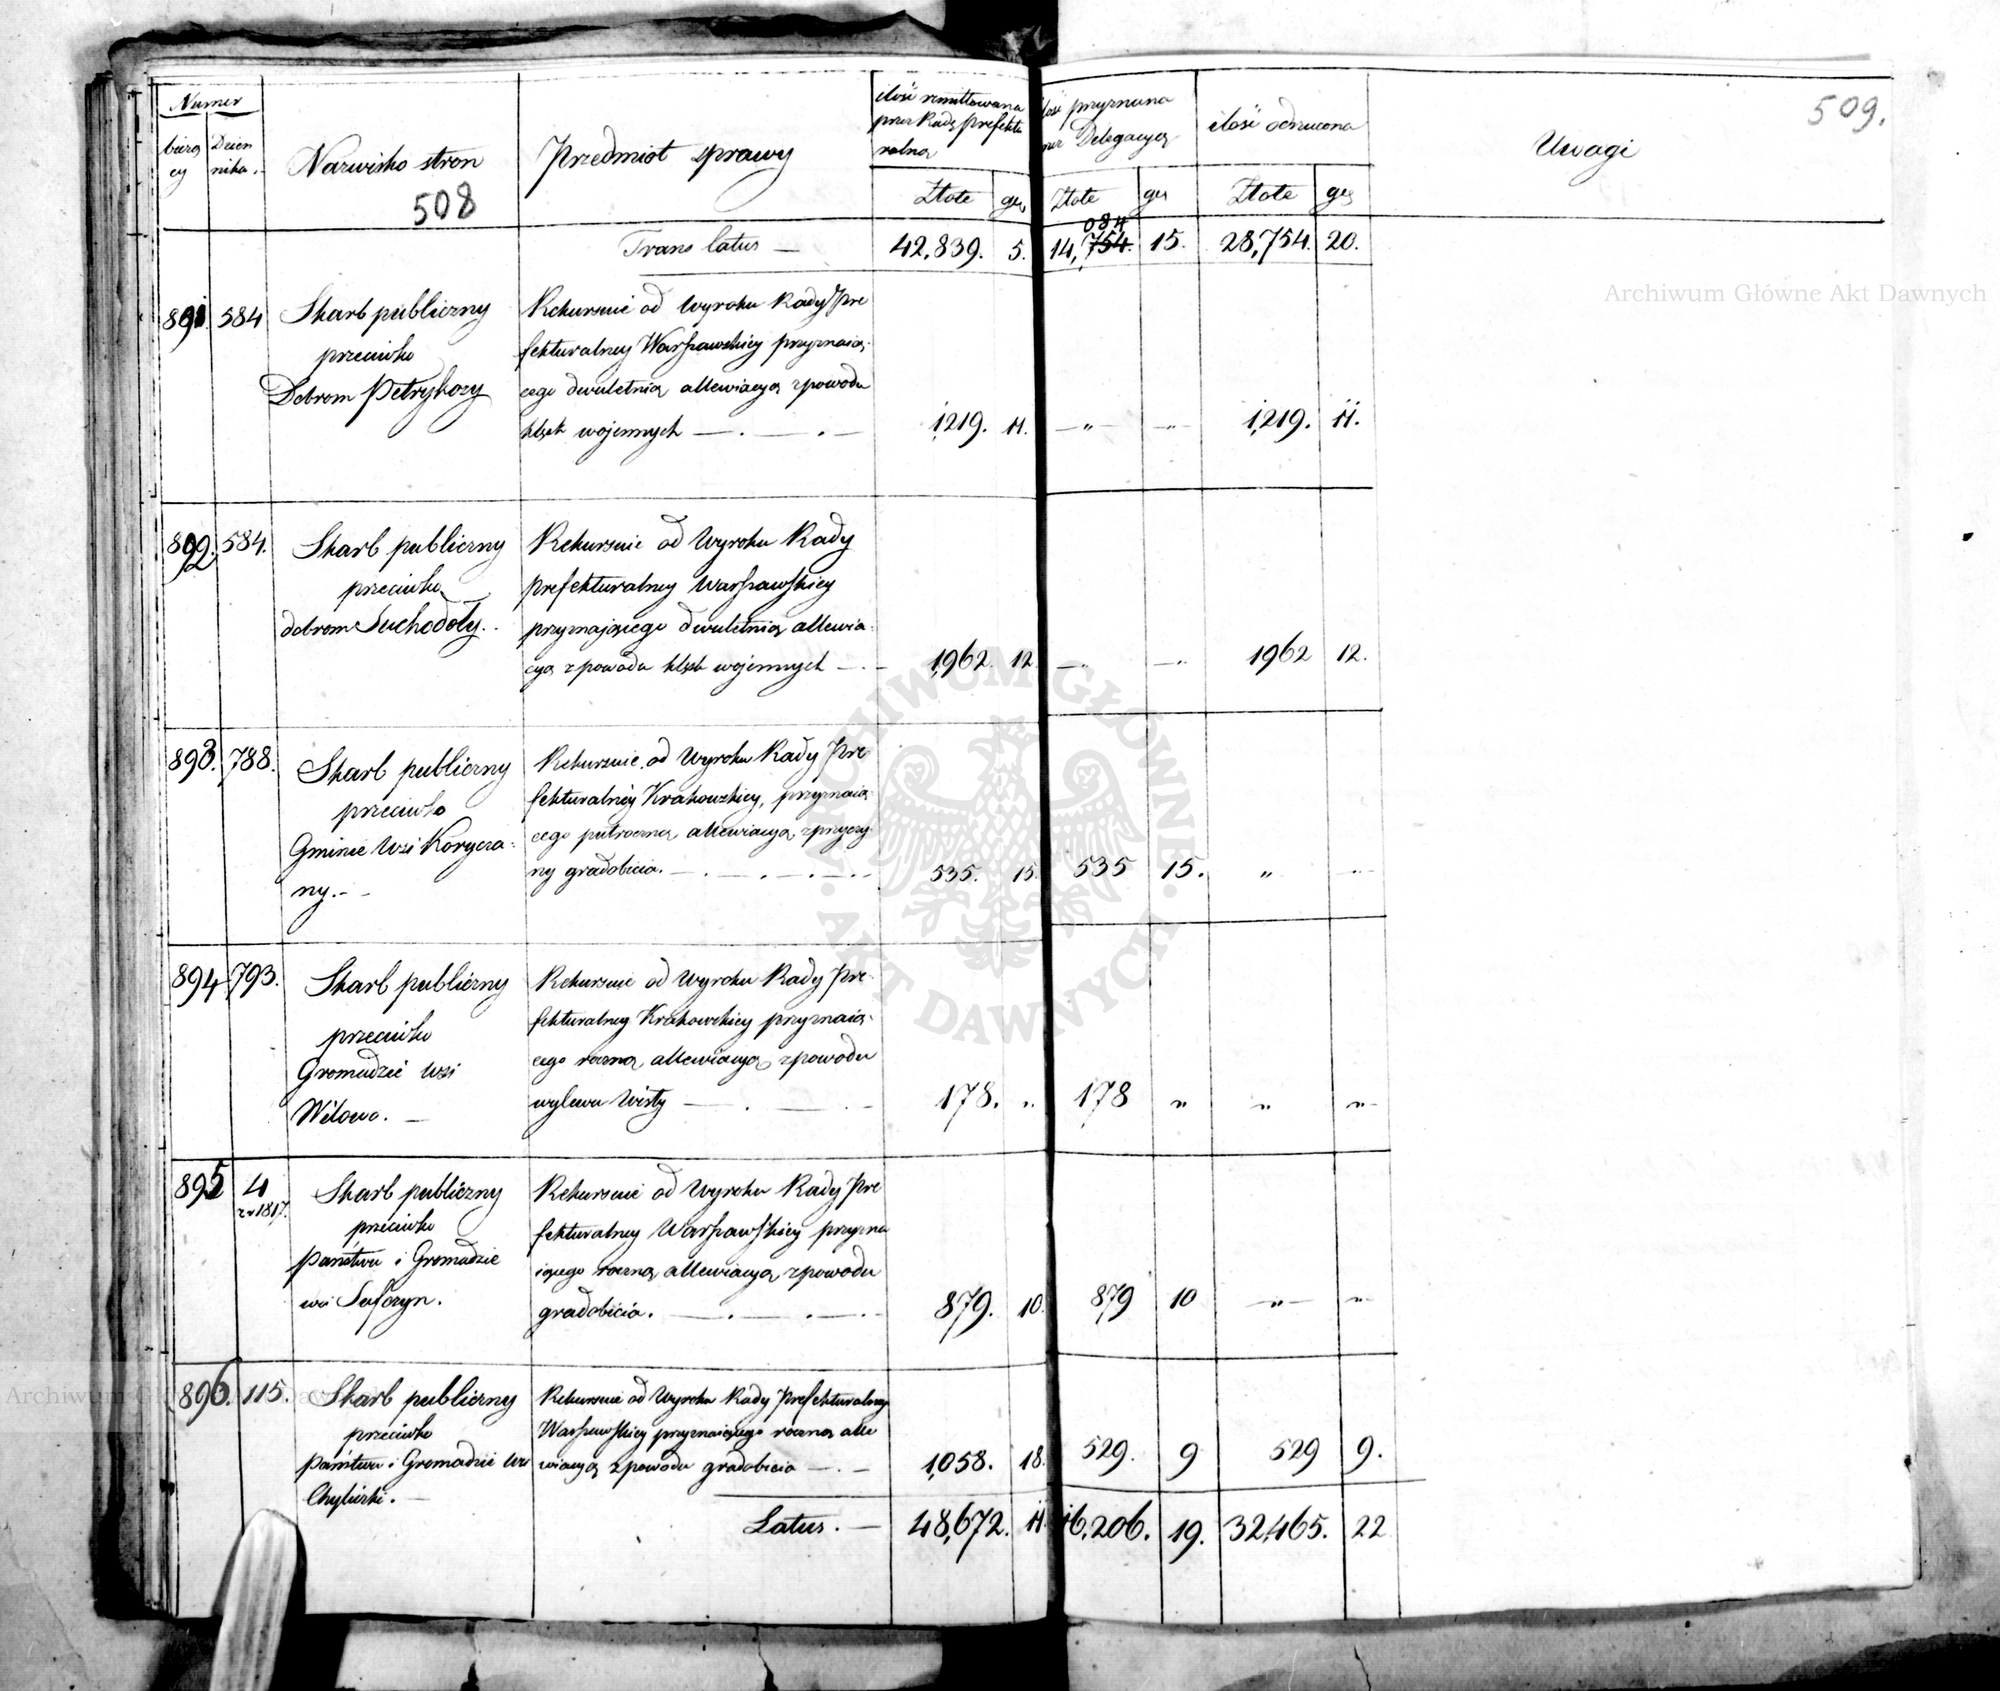 Numer
bieżą
cy
Dzien
nika.
Nazwisko stron
508
Przedmiot sprawy
ilość remittowana
przez Radę prefektu
ralną
Złote gr
ilość przyznana
przez Delegacyą
Złote gr
ilość odrzucona
Złote gr
Uwagi
509.
Trans latus — 42,839. 5. 14,754. 084 15. 28,754. 20.
Archiwum Główne Akt Dawnych
891. 584 Skarb publiczny
przeciwko
Dobrom Petrykozy
Rekursuie od Wyroku Rady Pre
fekturalney Warszawskiey przyznaią-
cego dwuletnią allewiacyą z powodu
klęsk wojennych — . — . —
1,219. 11. —„— —„— 1,219. 11.
892. 584. Skarb publiczny
przeciwko
dobrom Suchodoły. -
Rekursuie od Wyroku Rady
prefekturalney Warszawskiey
przyznającego dwuletnią allewia-
cyą z powodu klęsk wojennych — . -
1,962. 12. —„ —„ 1962 12.
893. 788. Skarb publiczny
przeciwko
Gminie Wsi Korycza-
ny. - -
Rekursuie od Wyroku Rady Pre
fekturalney Krakowskiey, przyznaią
cego pułroczną allewiacyą z przyczy
ny gradobicia. — . — . — . —
535. 15. 535 15. „ „
894 793. Skarb publiczny
przeciwko
Gromadzie wsi
Witowo. —
Rekursuie od Wyroku Rady Pre-
fekturalney Krakowskiey przyznaią-
cego roczną allewiacyą z powodu
wylewu Wisły — . — . —
178. „ 178 „ „ „
895 4
z r 1817. Skarb publiczny
przeciwko
Państwu i Gromadzie
wsi Suforyn.
Rekursuie od Wyroku Rady Pre
fekturalney Warszawskiey przyzna
iącego roczną allewiacyą z powodu
gradobicia. — . — . —
879. 10. 879 10 —„— „
896. 115. Skarb publiczny
przeciwko
Państwu i Gromadzie wsi
Chyliczki. —
Rekursuie od Wyroku Rady Prefekturalney
Warszawskiey przyznaiącego roczną alle
wiacyą z powodu gradobicia — . —
1,058. 18. 529. 9 529 9.
Latus. — 48,672. 11 16,206. 19. 32,465. 22
ARCHIWUM GŁÓWNE
AKT DAWNYCH